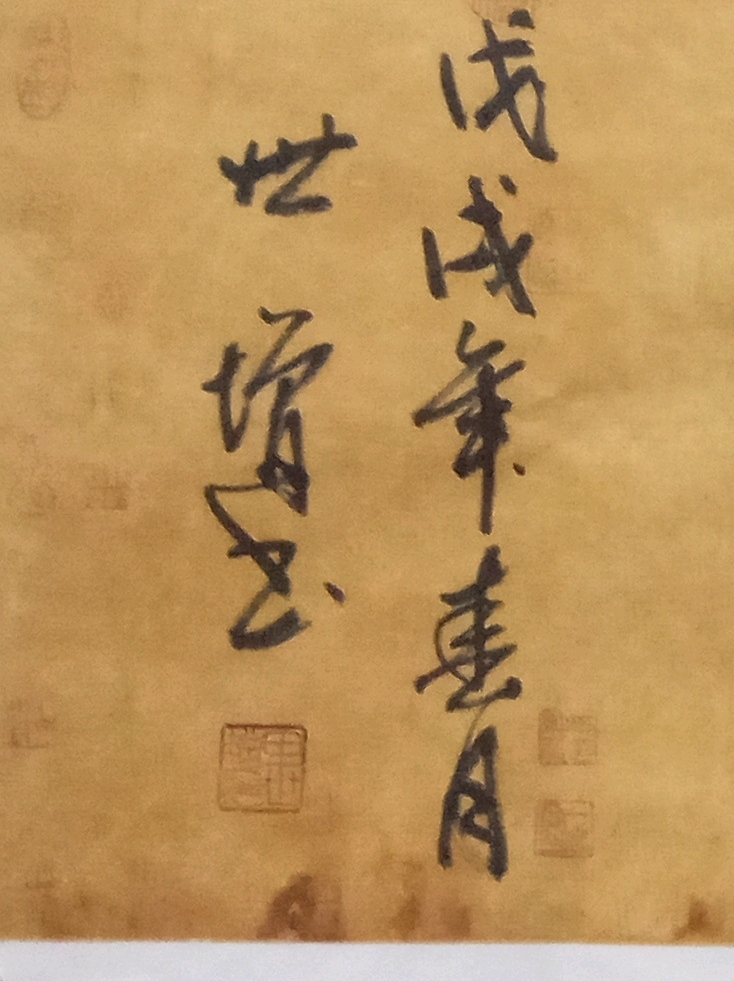 戊戌年春月
世增书